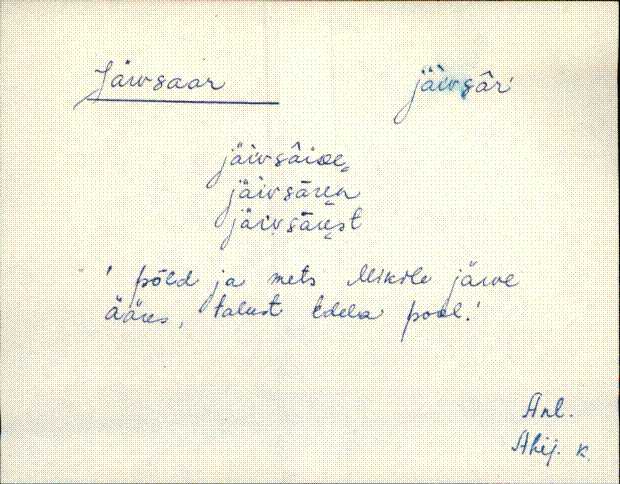 Järvsaar
järvsâr
järvsâroe
järvsāren
järvsārest
' põld ja mets Mikile järve
ääres, talust Edela pool.'
Anl.
Ahij. k.